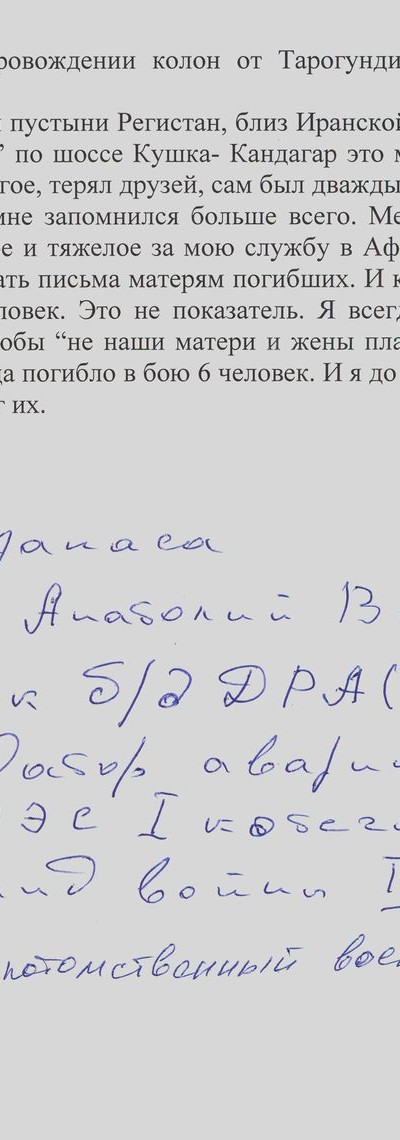 ровождении колон от Тарогунди
пустыни Регистан, близ Иранской
” по шоссе Кушка- Кандагар это м
гое, терял друзей, сам был дважды
мне запомнился больше всего. Ме
е и тяжелое за мою службу в Аф
ать письма матерям погибших. И к
ловек. Это не показатель. Я всег
обы “не наши матери и жены пла
да погибло в бою 6 человек. И я до
т их.
запаса
Анатолий В
к б/д ДРА(
аварии
ЭС I категори
лид войны I
потомственный воен